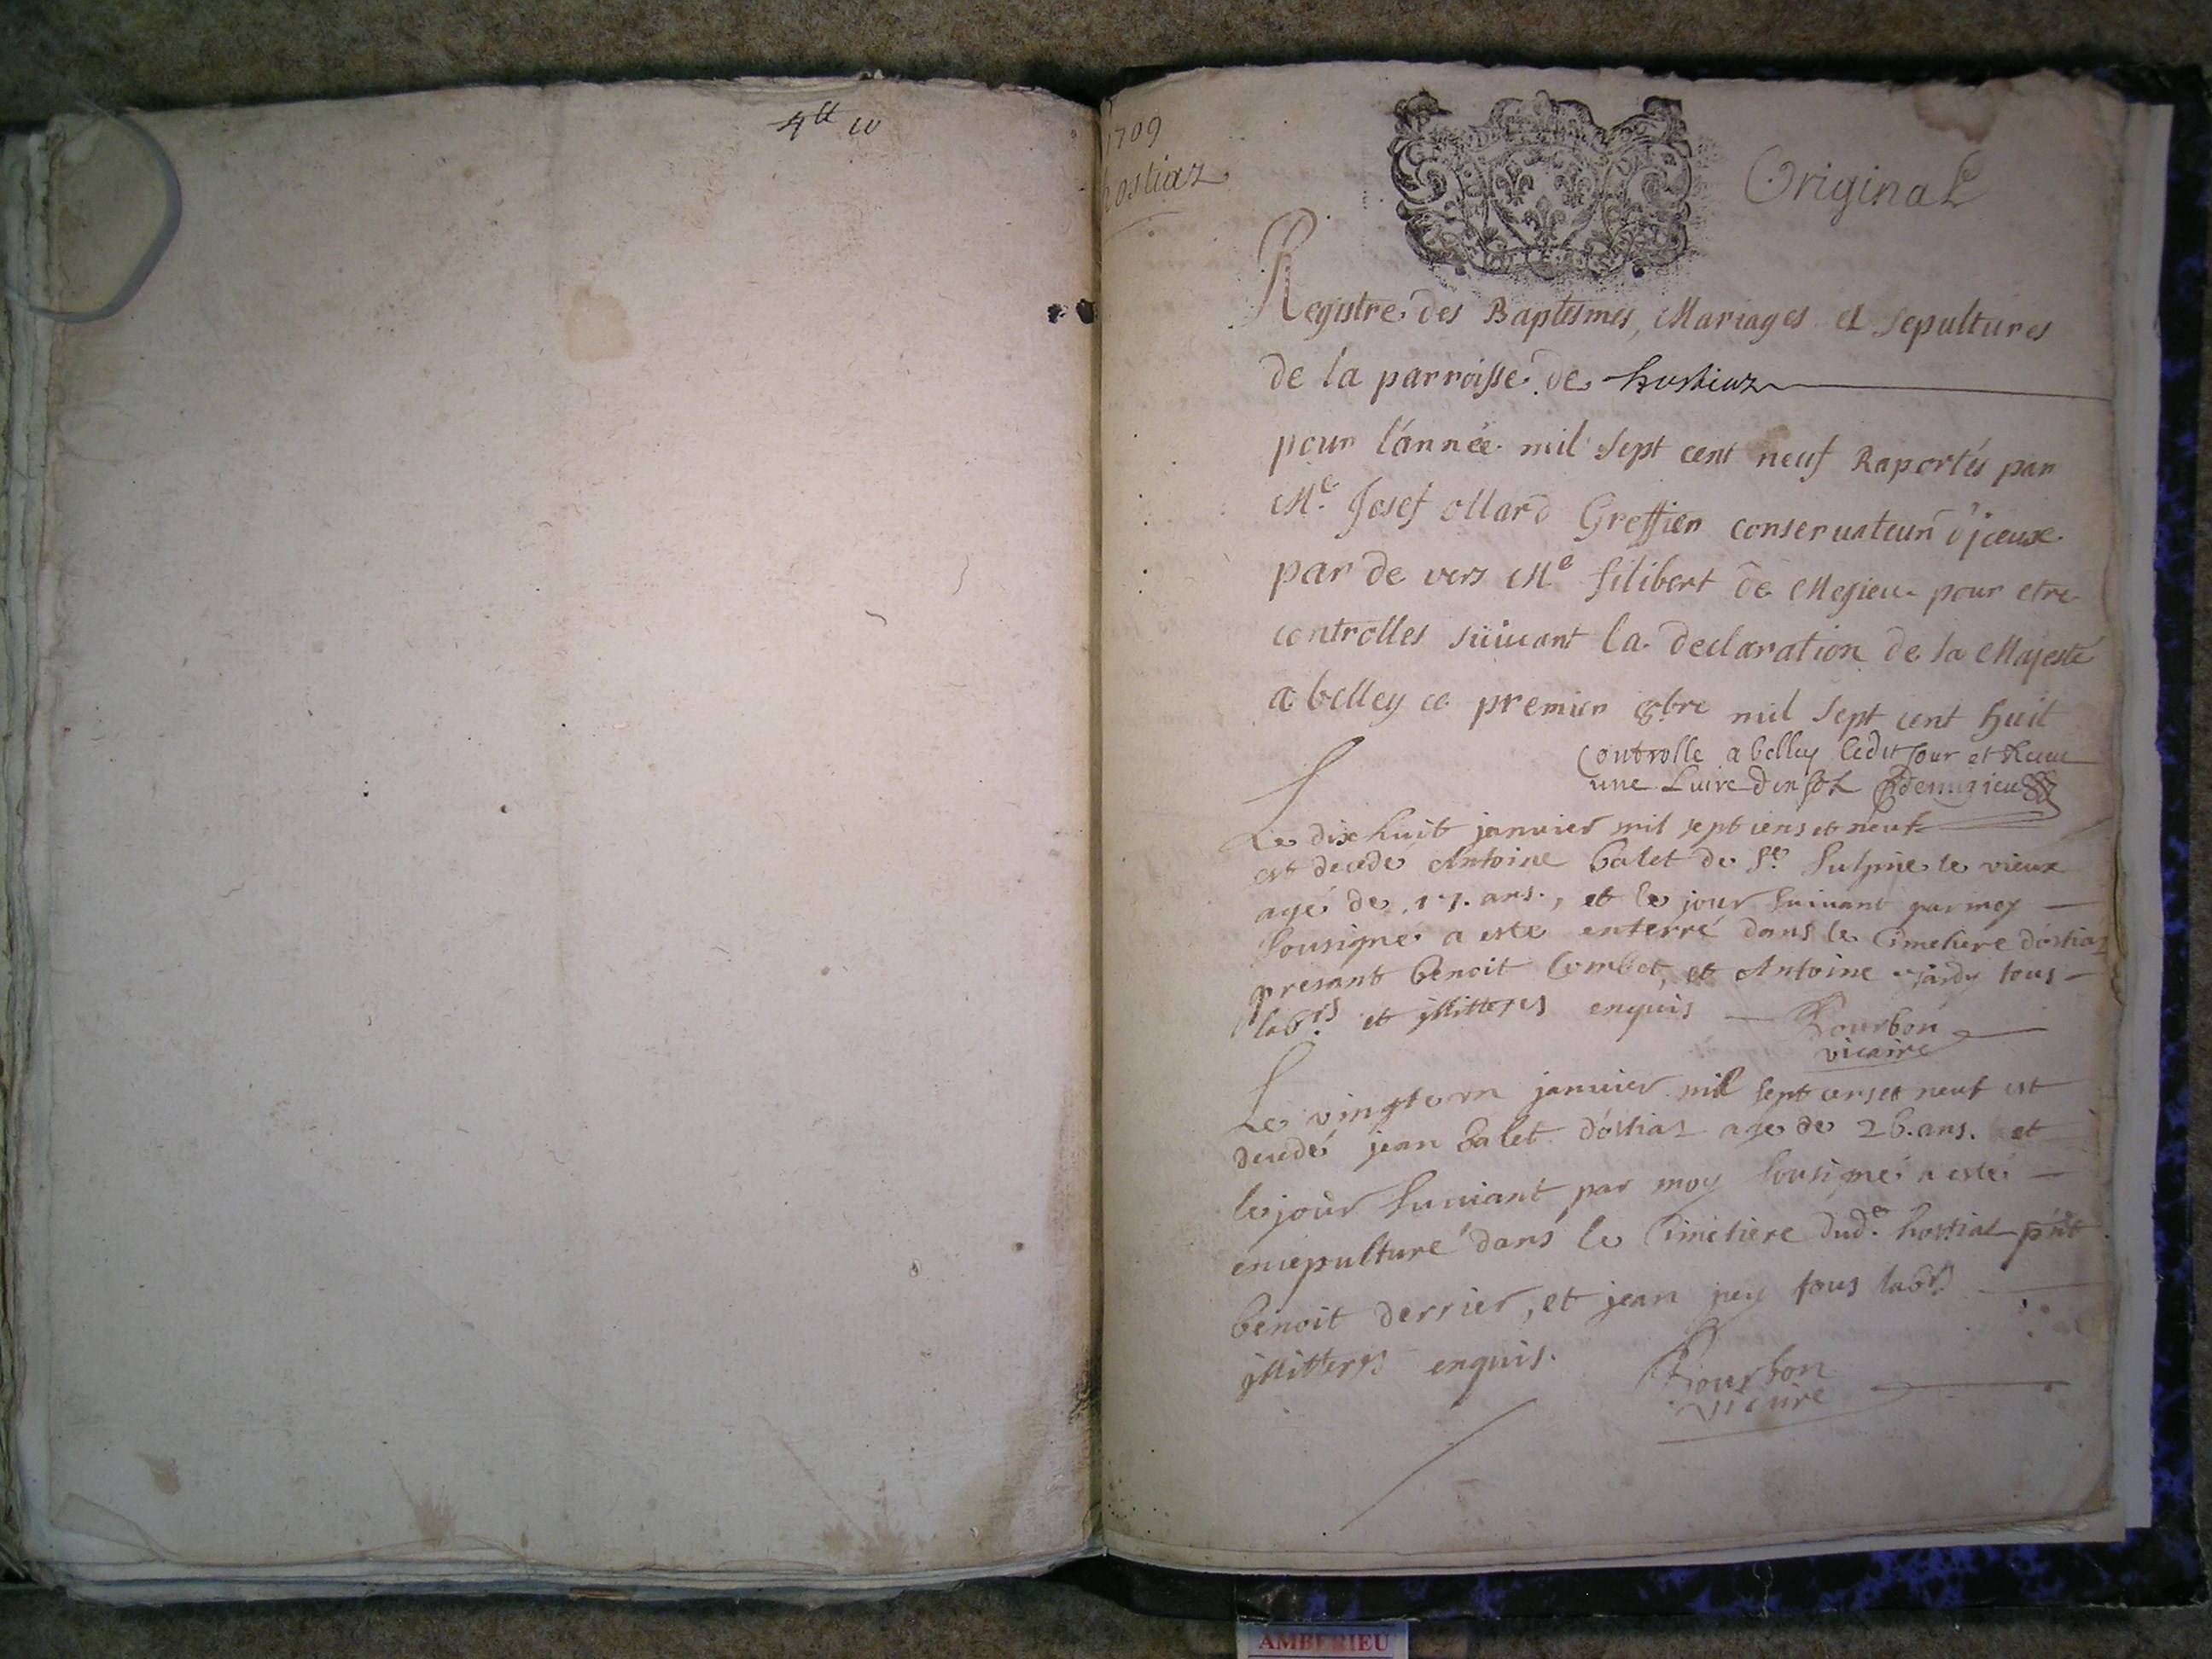 1709
hostiaz
Original
Registre des Baptesmes, Mariages et Sepultures
de la parroisse de hostiaz
pour l'année mil sept cent neuf Raportés par
Me. Josef ollard Greffier conseruateur d'jceux
par de vers Me filibert de Mesieu pour etre
controlles suiuant la declaration de sa Majesté
a belley ce premier 8bre mil sept cent huit
Controlle a belley ledit Jour et Receu
une Liure dix sol
Le dix huit januier mil sept cens et neuf
est decede Antoine balet de St. Sulpise le vieux
agé de 17. ans., et le jour suiuant par moy
sousigne a este enterré dans le Cimetiere dostiaz
presant benoit Combet, et Antoine jardy tous
labrs. et jllitteres enquis Bourbon
vicaire
Le vingt un januier mil sept cens et neuf est
decedé jean balet d'ostiaz age de 26. ans. et
le jour suiuant par moy sousigné a esté
ensepulturé dans le Cimetiere dud. hostiaz pnt
benoit derrier, et jean juy tous labrs
jllitteres enquis. Bourbon
vicaire
AMBERIEU